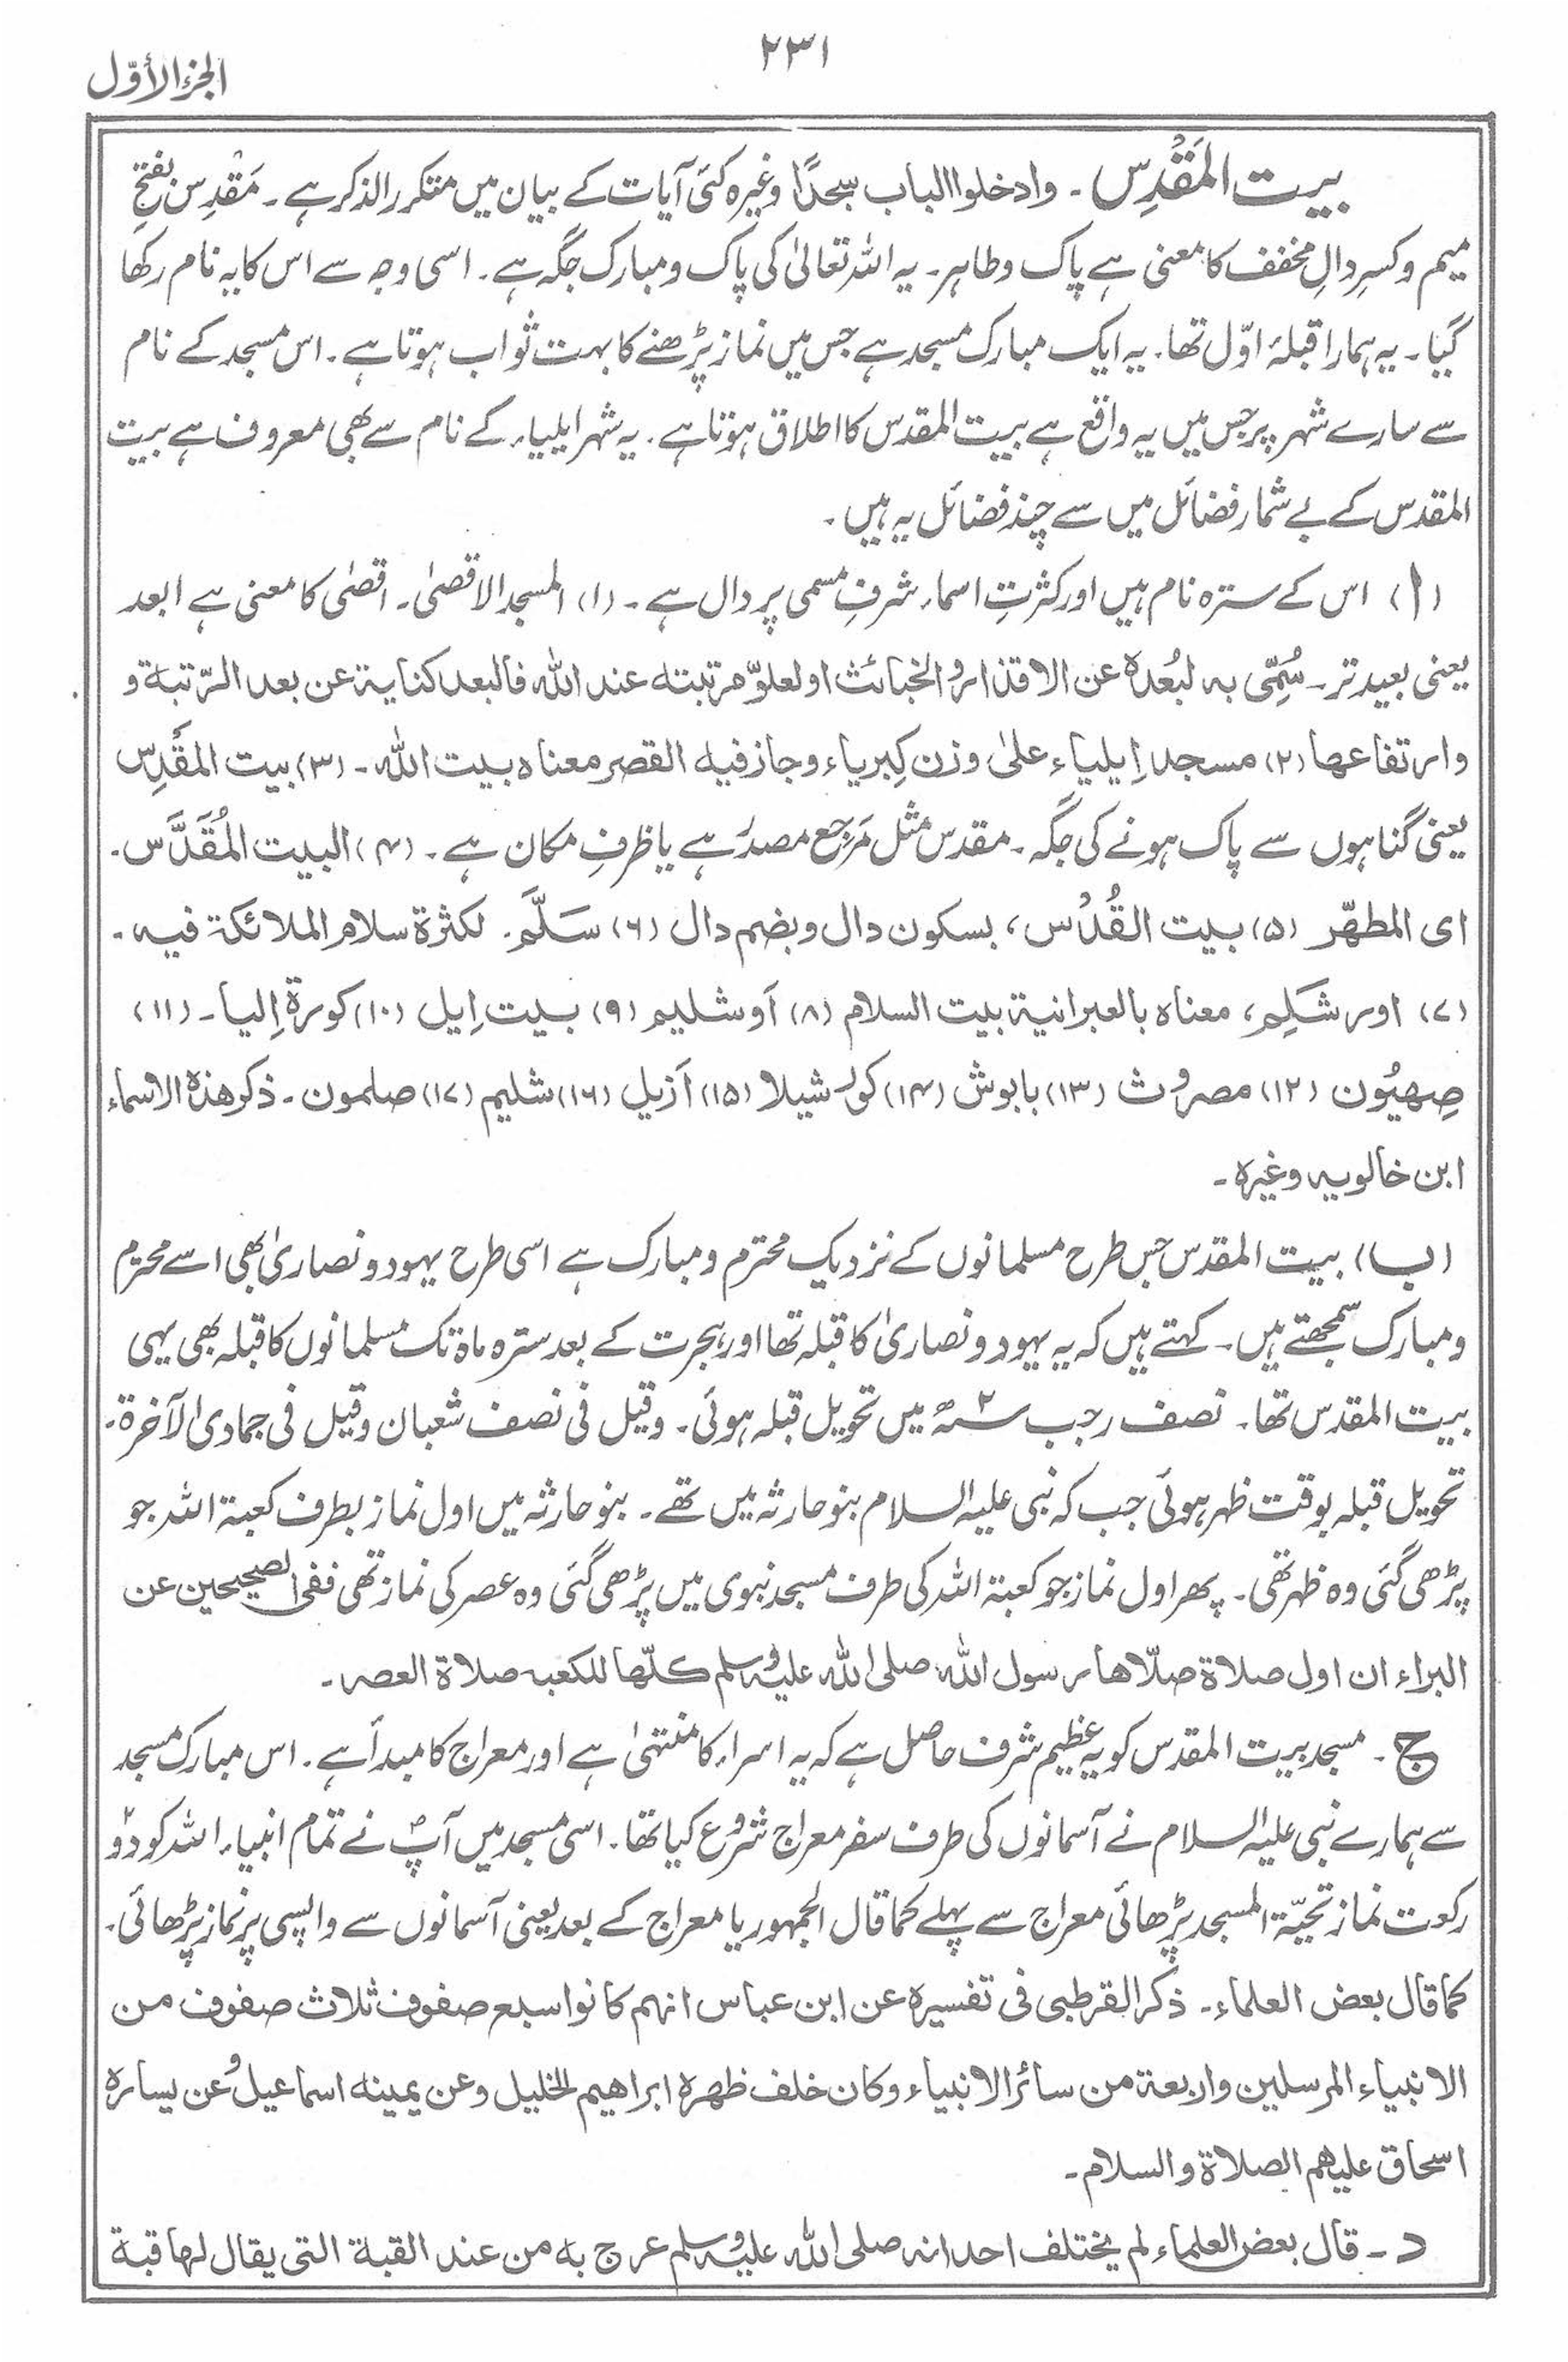 ۲۳۱
الجزء الأوّل
بیت المَقْدِس ۔ وادخلوا الباب سجدًا وغیرہ کئی آیات کے بیان میں متکرر الذکر ہے ۔ مَقْدِس بفتحِ
میم و کسرِ دالِ مخفف کا معنی ہے پاک و طاہر ۔ یہ اللہ تعالیٰ کی پاک و مبارک جگہ ہے ۔ اسی وجہ سے اس کا یہ نام رکھا
گیا ۔ یہ ہمارا قبلۂ اوّل تھا ۔ یہ ایک مبارک مسجد ہے جس میں نماز پڑھنے کا بہت ثواب ہوتا ہے ۔ اس مسجد کے نام
سے سارے شہر پر جس میں یہ واقع ہے بیت المقدس کا اطلاق ہوتا ہے ۔ یہ شہر ایلیاء کے نام سے بھی معروف ہے بیت
المقدس کے بے شمار فضائل میں سے چند فضائل یہ ہیں ۔
(ا) اس کے سترہ نام ہیں اور کثرتِ اسماء شرفِ مسمی پر دال ہے ۔ (۱) المسجد الاقصیٰ ۔ اقصٰی کا معنی ہے ابعد
یعنی بعید تر ۔ سُمِّی بہ لبُعدہ عن الاقذار والخبائث او لعلوّ مرتبتہ عند اللہ فالبعد کنایۃ عن بعد الرّتبۃ و
وارتفاعھا (۲) مسجد اِیلیاء علیٰ وزن کِبریاء وجاز فیہ القصر معناہ بیت اللہ ۔ (۳) بیت المَقْدِس
یعنی گناہوں سے پاک ہونے کی جگہ ۔ مقدس مثل مَرجِع مصدر ہے یا ظرفِ مکان ہے ۔ (۴) البیت المُقَدَّس ۔
ای المطھّر (۵) بیت القُدْس ، بسکون دال و بضم دال (۶) سَلَّم ۔ لکثرۃ سلام الملائکۃ فیہ ۔
(۷) اورشَلِم ، معناہ بالعبرانیۃ بیت السلام (۸) اَوشلیم (۹) بیت اِیل (۱۰) کورۃ اِلیا ۔ (۱۱)
صِھیُون (۱۲) مصروث (۱۳) بابوش (۱۴) کور شیلا (۱۵) اَزیل (۱۶) شلیم (۱۷) صلمون ۔ ذکر ھذہ الاسماء
ابن خالویہ وغیرہ ۔
(ب) بیت المقدس جس طرح مسلمانوں کے نزدیک محترم و مبارک ہے اسی طرح یہود و نصاریٰ بھی اسے محترم
و مبارک سمجھتے ہیں ۔ کہتے ہیں کہ یہ یہود و نصاریٰ کا قبلہ تھا اور ہجرت کے بعد سترہ ماہ تک مسلمانوں کا قبلہ بھی یہی
بیت المقدس تھا ۔ نصف رجب سنہ ۲ھ میں تحویل قبلہ ہوئی ۔ وقیل فی نصف شعبان وقیل فی جمادی الآخرۃ ۔
تحویل قبلہ بوقت ظہر ہوئی جب کہ نبی علیہ السلام بنو حارثہ میں تھے ۔ بنو حارثہ میں اول نماز بطرف کعبۃ اللہ جو
پڑھی گئی وہ ظہر تھی ۔ پھر اول نماز جو کعبۃ اللہ کی طرف مسجد نبوی میں پڑھی گئی وہ عصر کی نماز تھی ففی الصحیحین عن
البراء ان اول صلاۃ صلّاھا رسول اللہ صلی اللہ علیہ وسلم کلّھا للکعبہ صلاۃ العصر ۔
ج ۔ مسجد بیت المقدس کو یہ عظیم شرف حاصل ہے کہ یہ اسراء کا منتہیٰ ہے اور معراج کا مبدأ ہے ۔ اس مبارک مسجد
سے ہمارے نبی علیہ السلام نے آسمانوں کی طرف سفر معراج شروع کیا تھا ۔ اسی مسجد میں آپؐ نے تمام انبیاء اللہ کو دو
رکعت نماز تحیّۃ المسجد پڑھائی معراج سے پہلے کما قال الجمہور یا معراج کے بعد یعنی آسمانوں سے واپسی پر نماز پڑھائی ۔
کما قال بعض العلماء ۔ ذکر القرطبی فی تفسیرہ عن ابن عباس انہم کانوا سبع صفوف ثلاث صفوف من
الانبیاء المرسلین واربعۃ من سائر الانبیاء وکان خلف ظھرہ ابراھیم الخلیل وعن یمینہ اسماعیل وعن یسارہ
اسحاق علیہم الصلاۃ والسلام ۔
د ۔ قال بعض العلماء لم یختلف احد انہ صلی اللہ علیہ وسلم عرج بہ من عند القبۃ التی یقال لہا قبۃ